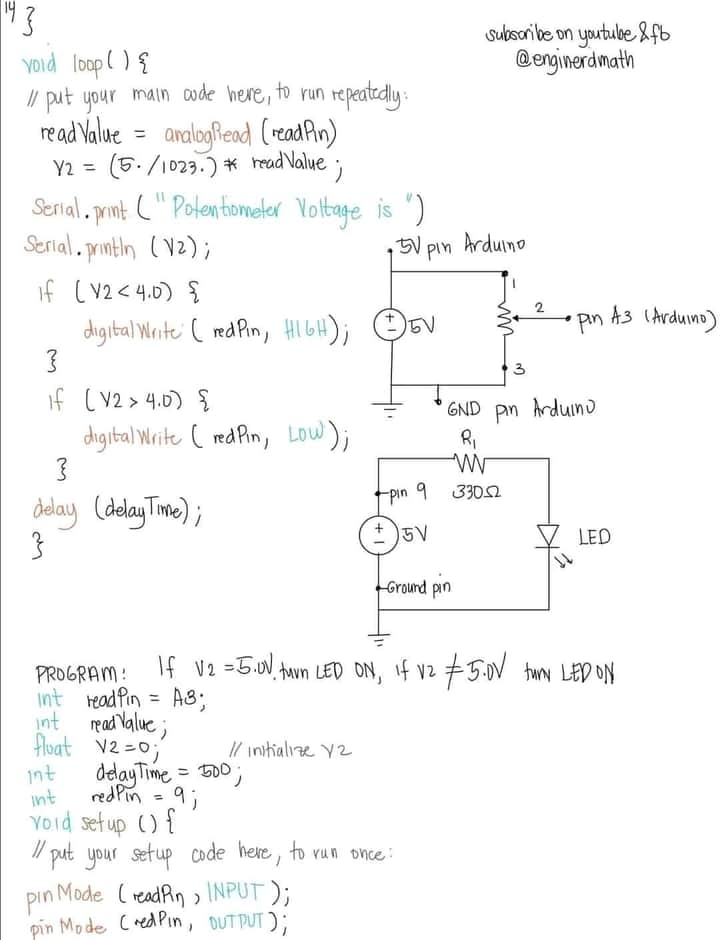 14 }
subscribe on youtube & fb
@enginerdmath
void loop() {
// put your main code here, to run repeatedly:
readValue = analogRead (readPin)
V2 = (5. /1023.) * readValue ;
Serial.print ("Potentiometer Voltage is ")
Serial.println (V2);
if (V2 < 4.0) {
digitalWrite ( redPin, HIGH);
}
if (V2 > 4.0) {
digitalWrite ( redPin, LOW);
}
delay (delayTime);
}
5V pin Arduino
1
+
-
5V
2
pin A3 (Arduino)
3
GND pin Arduino
R1
330Ω
pin 9
+
-
5V
LED
Ground pin
PROGRAM: If V2 = 5.0V, turn LED ON, if V2 ≠ 5.0V turn LED ON
int readPin = A3;
int readValue;
float V2=0; // initialize V2
int delayTime = 500;
int redPin = 9;
void setup () {
// put your setup code here, to run once:
pinMode (readPin, INPUT);
pinMode (redPin, OUTPUT);